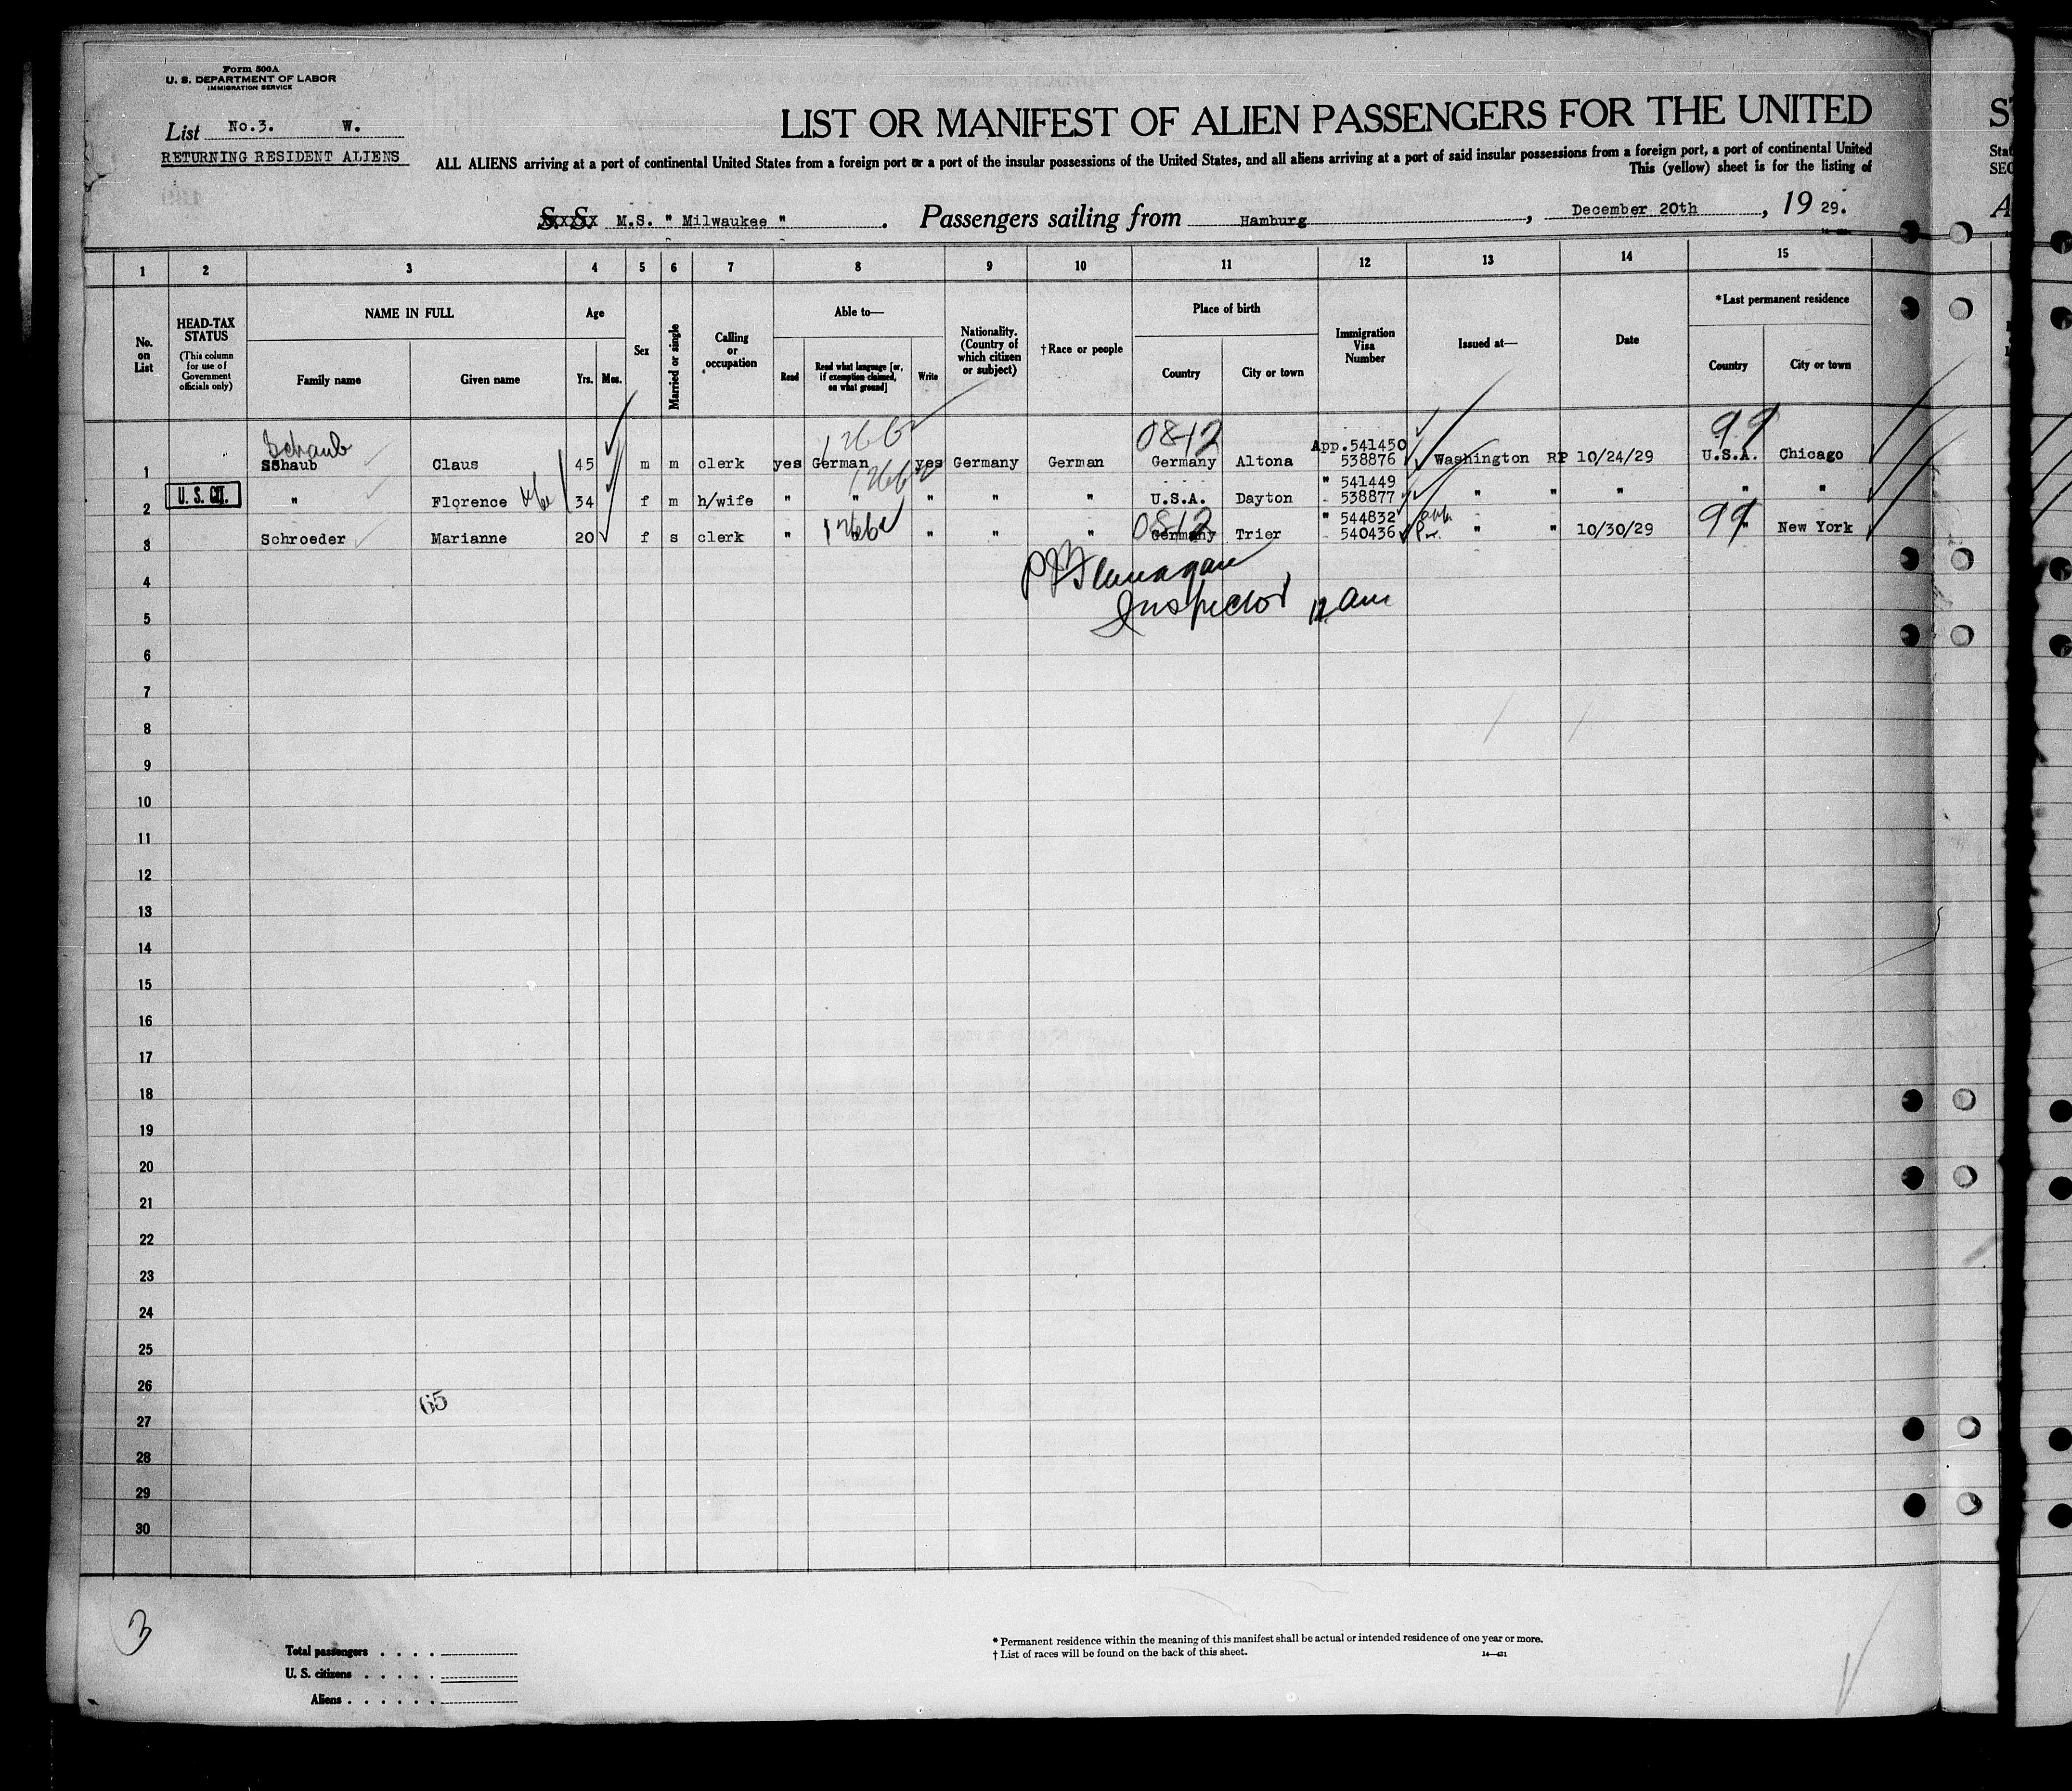 Form 500A
U. S. DEPARTMENT OF LABOR
IMMIGRATION SERVICE
List No.3. W.
RETURNING RESIDENT ALIENS
LIST OR MANIFEST OF ALIEN PASSENGERS FOR THE UNITED
ALL ALIENS arriving at a port of continental United States from a foreign port or a port of the insular possessions of the United States, and all aliens arriving at a port of said insular possessions from a foreign port, a port of continental United
This (yellow) sheet is for the listing of
S. S. M.S. " Milwaukee " . Passengers sailing from Hamburg , December 20th , 19 29.
1 2 3 4 5 6 7 8 9 10 11 12 13 14 15
No. on List
HEAD-TAX STATUS
(This column for use of Government officials only)
NAME IN FULL
Family name
Given name
Age
Yrs.
Mos.
Sex
Married or single
Calling or occupation
Able to—
Read
Read what language [or, if exemption claimed, on what ground]
Write
Nationality. (Country of which citizen or subject)
†Race or people
Place of birth
Country
City or town
Immigration Visa Number
Issued at—
Date
*Last permanent residence
Country
City or town
Schaub 0812 99
App.541450
1 SShaub Claus 45 m m clerk yes German yes Germany German Germany Altona 538876 Washington RP 10/24/29 U.S.A. Chicago
" 541449
2 U. S. CIT. " Florence 34 f m h/wife " " " " " U.S.A. Dayton 538877 " " " " "
0812 " 544832 99
3 Schroeder Marianne 20 f s clerk " " " " " Germany Trier 540436 " " 10/30/29 " New York
4 P J Flannagan
5 Inspector
6
7
8
9
10
11
12
13
14
15
16
17
18
19
20
21
22
23
24
25
26
65
27
28
29
30
3
Total passengers . . . .
U. S. citizens . . . . .
Aliens . . . . . .
* Permanent residence within the meaning of this manifest shall be actual or intended residence of one year or more.
† List of races will be found on the back of this sheet.
14—431